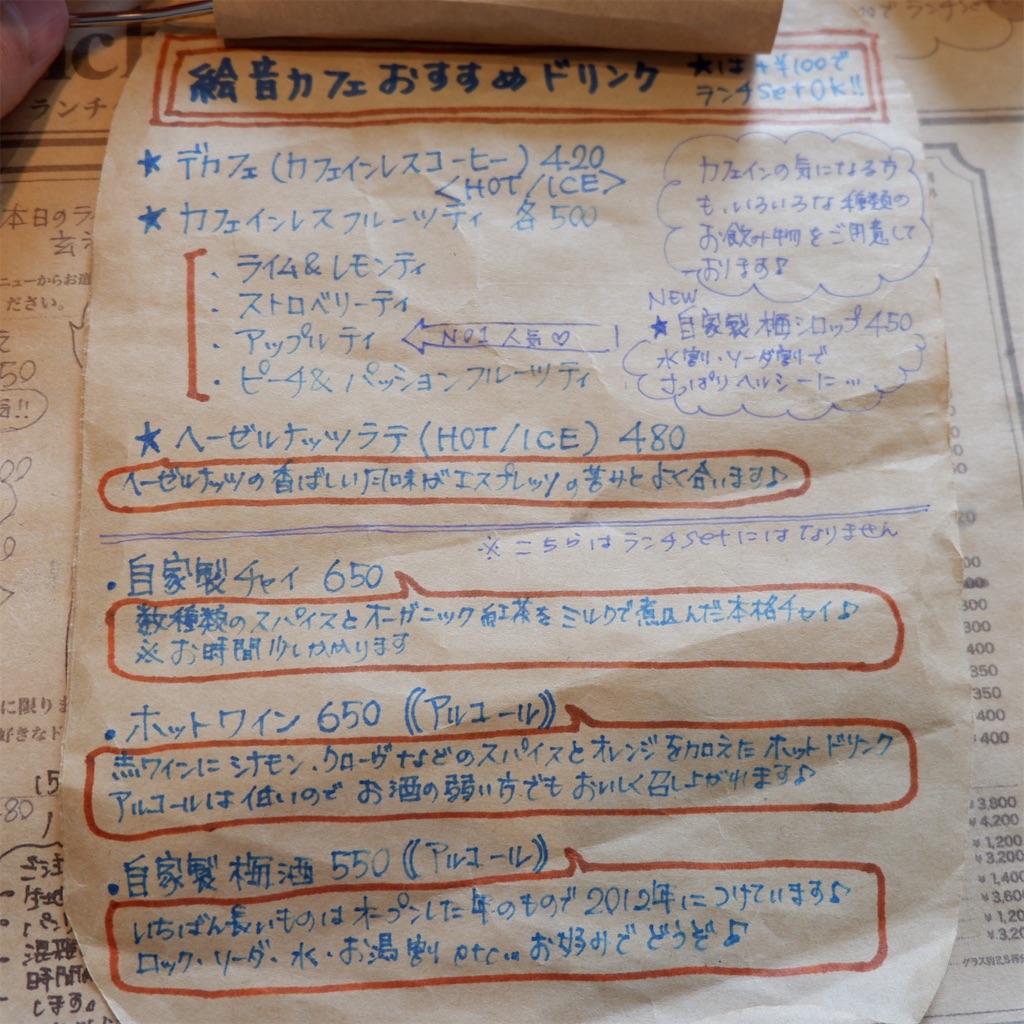 絵音カフェおすすめドリンク
★は+¥100で
ランチSetOK!!
★ デカフェ(カフェインレスコーヒー) 420
<HOT/ICE>
★ カフェインレスフルーツティ 各500
・ライム&レモンティ
・ストロベリーティ
・アップルティ
NO1 人気♡
・ピーチ&パッションフルーツティ
カフェインの気になる方
も、いろいろな種類の
お飲み物をご用意して
おります♪
NEW
★自家製梅シロップ450
水割・ソーダ割で
さっぱりヘルシーに…
★ ヘーゼルナッツラテ(HOT/ICE) 480
ヘーゼルナッツの香ばしい風味がエスプレッソの苦みとよく合います♪
※こちらはランチSetにはなりません
・自家製チャイ 650
数種類のスパイスとオーガニック紅茶をミルクで煮込んだ本格チャイ♪
※お時間少しかかります
・ホットワイン 650 《アルコール》
赤ワインにシナモン、クローヴなどのスパイスとオレンジを加えたホットドリンク
アルコールは低いので お酒の弱い方でもおいしく召し上がれます♪
・自家製梅酒 550《アルコール》
いちばん長いものはオープンした年のもので2012年につけています♪
ロック・ソーダ・水・お湯割 etc… お好みでどうぞ♪
ランチ
本日のラ
ニューからお選
ださい。
50
に限りま
好きなド
80
時間
します。
300
400
350
350
400
¥400
¥3,800
¥4,200
¥1,200
¥3,200
¥1,400
¥3,600
¥1,20
¥3,20
グラス約2.5杯分